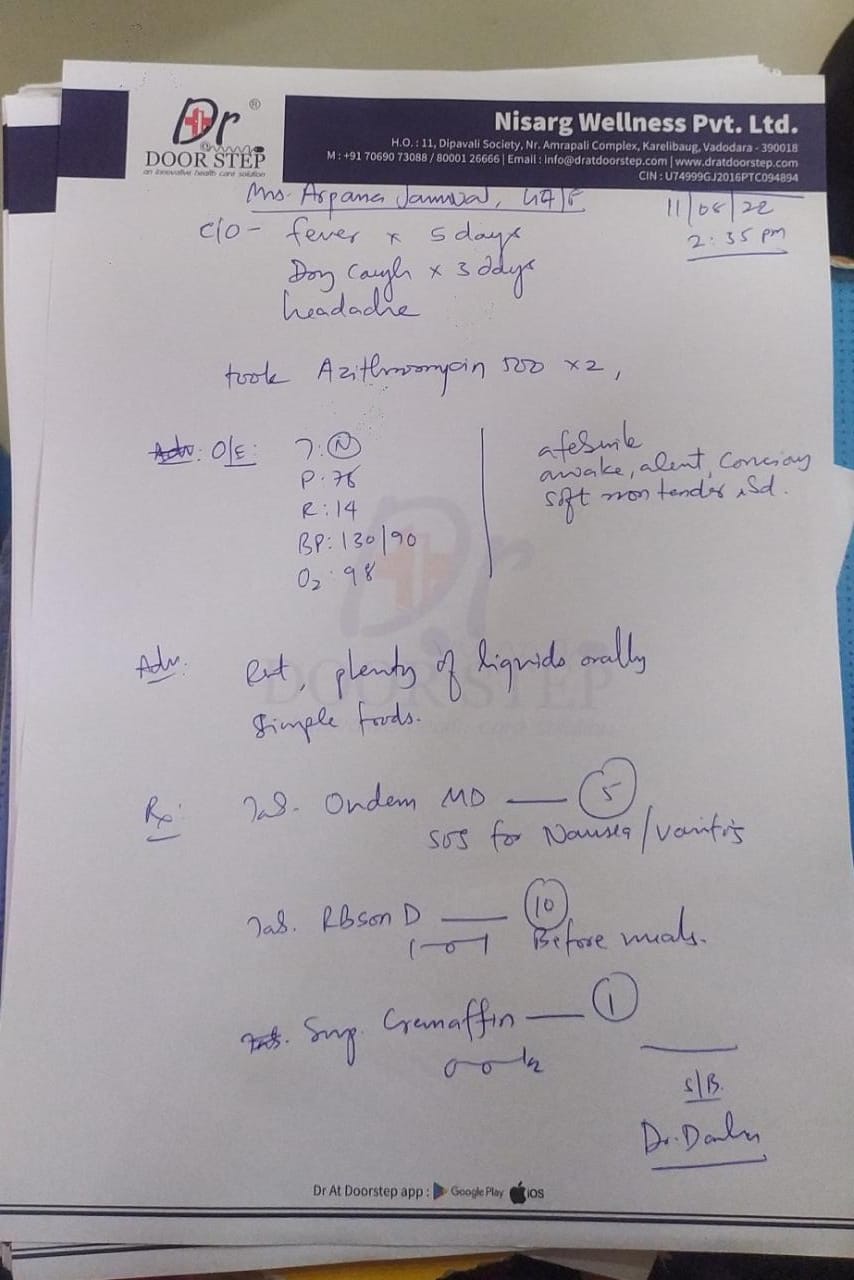 Dr ®
DOOR STEP
an innovative health care solution
Nisarg Wellness Pvt. Ltd.
H.O. : 11, Dipavali Society, Nr. Amrapali Complex, Karelibaug, Vadodara - 390018
M : +91 70690 73088 / 80001 26666 | Email : info@dratdoorstep.com | www.dratdoorstep.com
CIN : U74999GJ2016PTC094894
Mrs. Arpana
11/08/22
2:35 pm
c/o - fever x 5 days
Dry Cough x 3 days
headache
took Azithromycin 500 x 2,
Adv: O/E:
T: N
P: 76
R: 14
BP: 130/90
O2: 98
afebrile
awake, alert,
soft non tender
Adv.
Rest, plenty of liquids orally
Simple foods.
Rx:
Tab. Ondem MD — 5
SOS for Nausea/
Tab. Rbson D — 10
1-0-1 Before meals.
Syp. Cremaffin — 1
S/B.
Dr.
DOOR STEP
Dr At Doorstep app : Google Play iOS